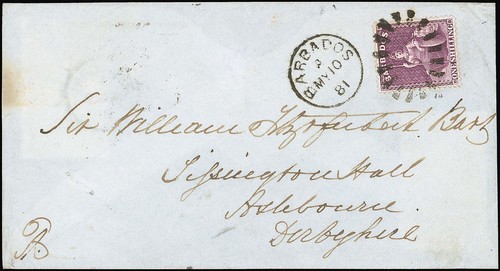 BARBADOS
MY 10
81
BARBADOS
ONE SHILLING
Sir William Fitzherbert Bart
Tissington Hall
Ashbourne
Derbyshire